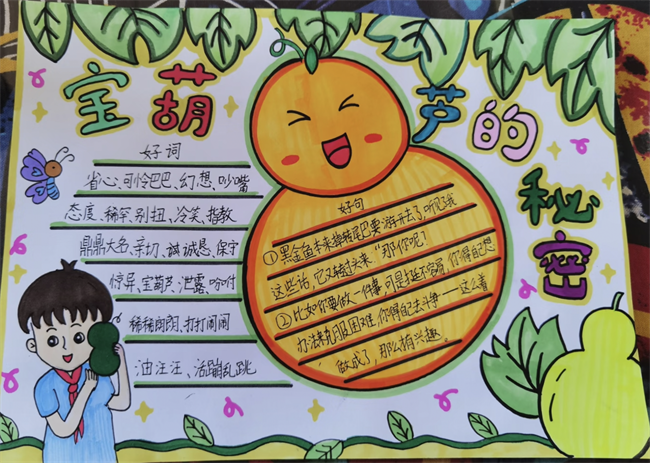 宝葫芦的秘密
好词
省心、可怜巴巴、幻想、吵嘴
态度、稀罕、别扭、冷笑、指教
鼎鼎大名、亲切、诚诚恳、保守
惊异、宝葫芦、泄露、吩咐
稀稀朗朗、打打闹闹
油汪汪、活蹦乱跳
好句
①黑金鱼本来掉转尾巴要游开去了,听见了我
这些话,它又转过头来"那你呢?
②比如你要做一件事,可是挺不容易,你得自己想
办法克服困难,你得自己去争——这么着
做成了,那么有兴趣。